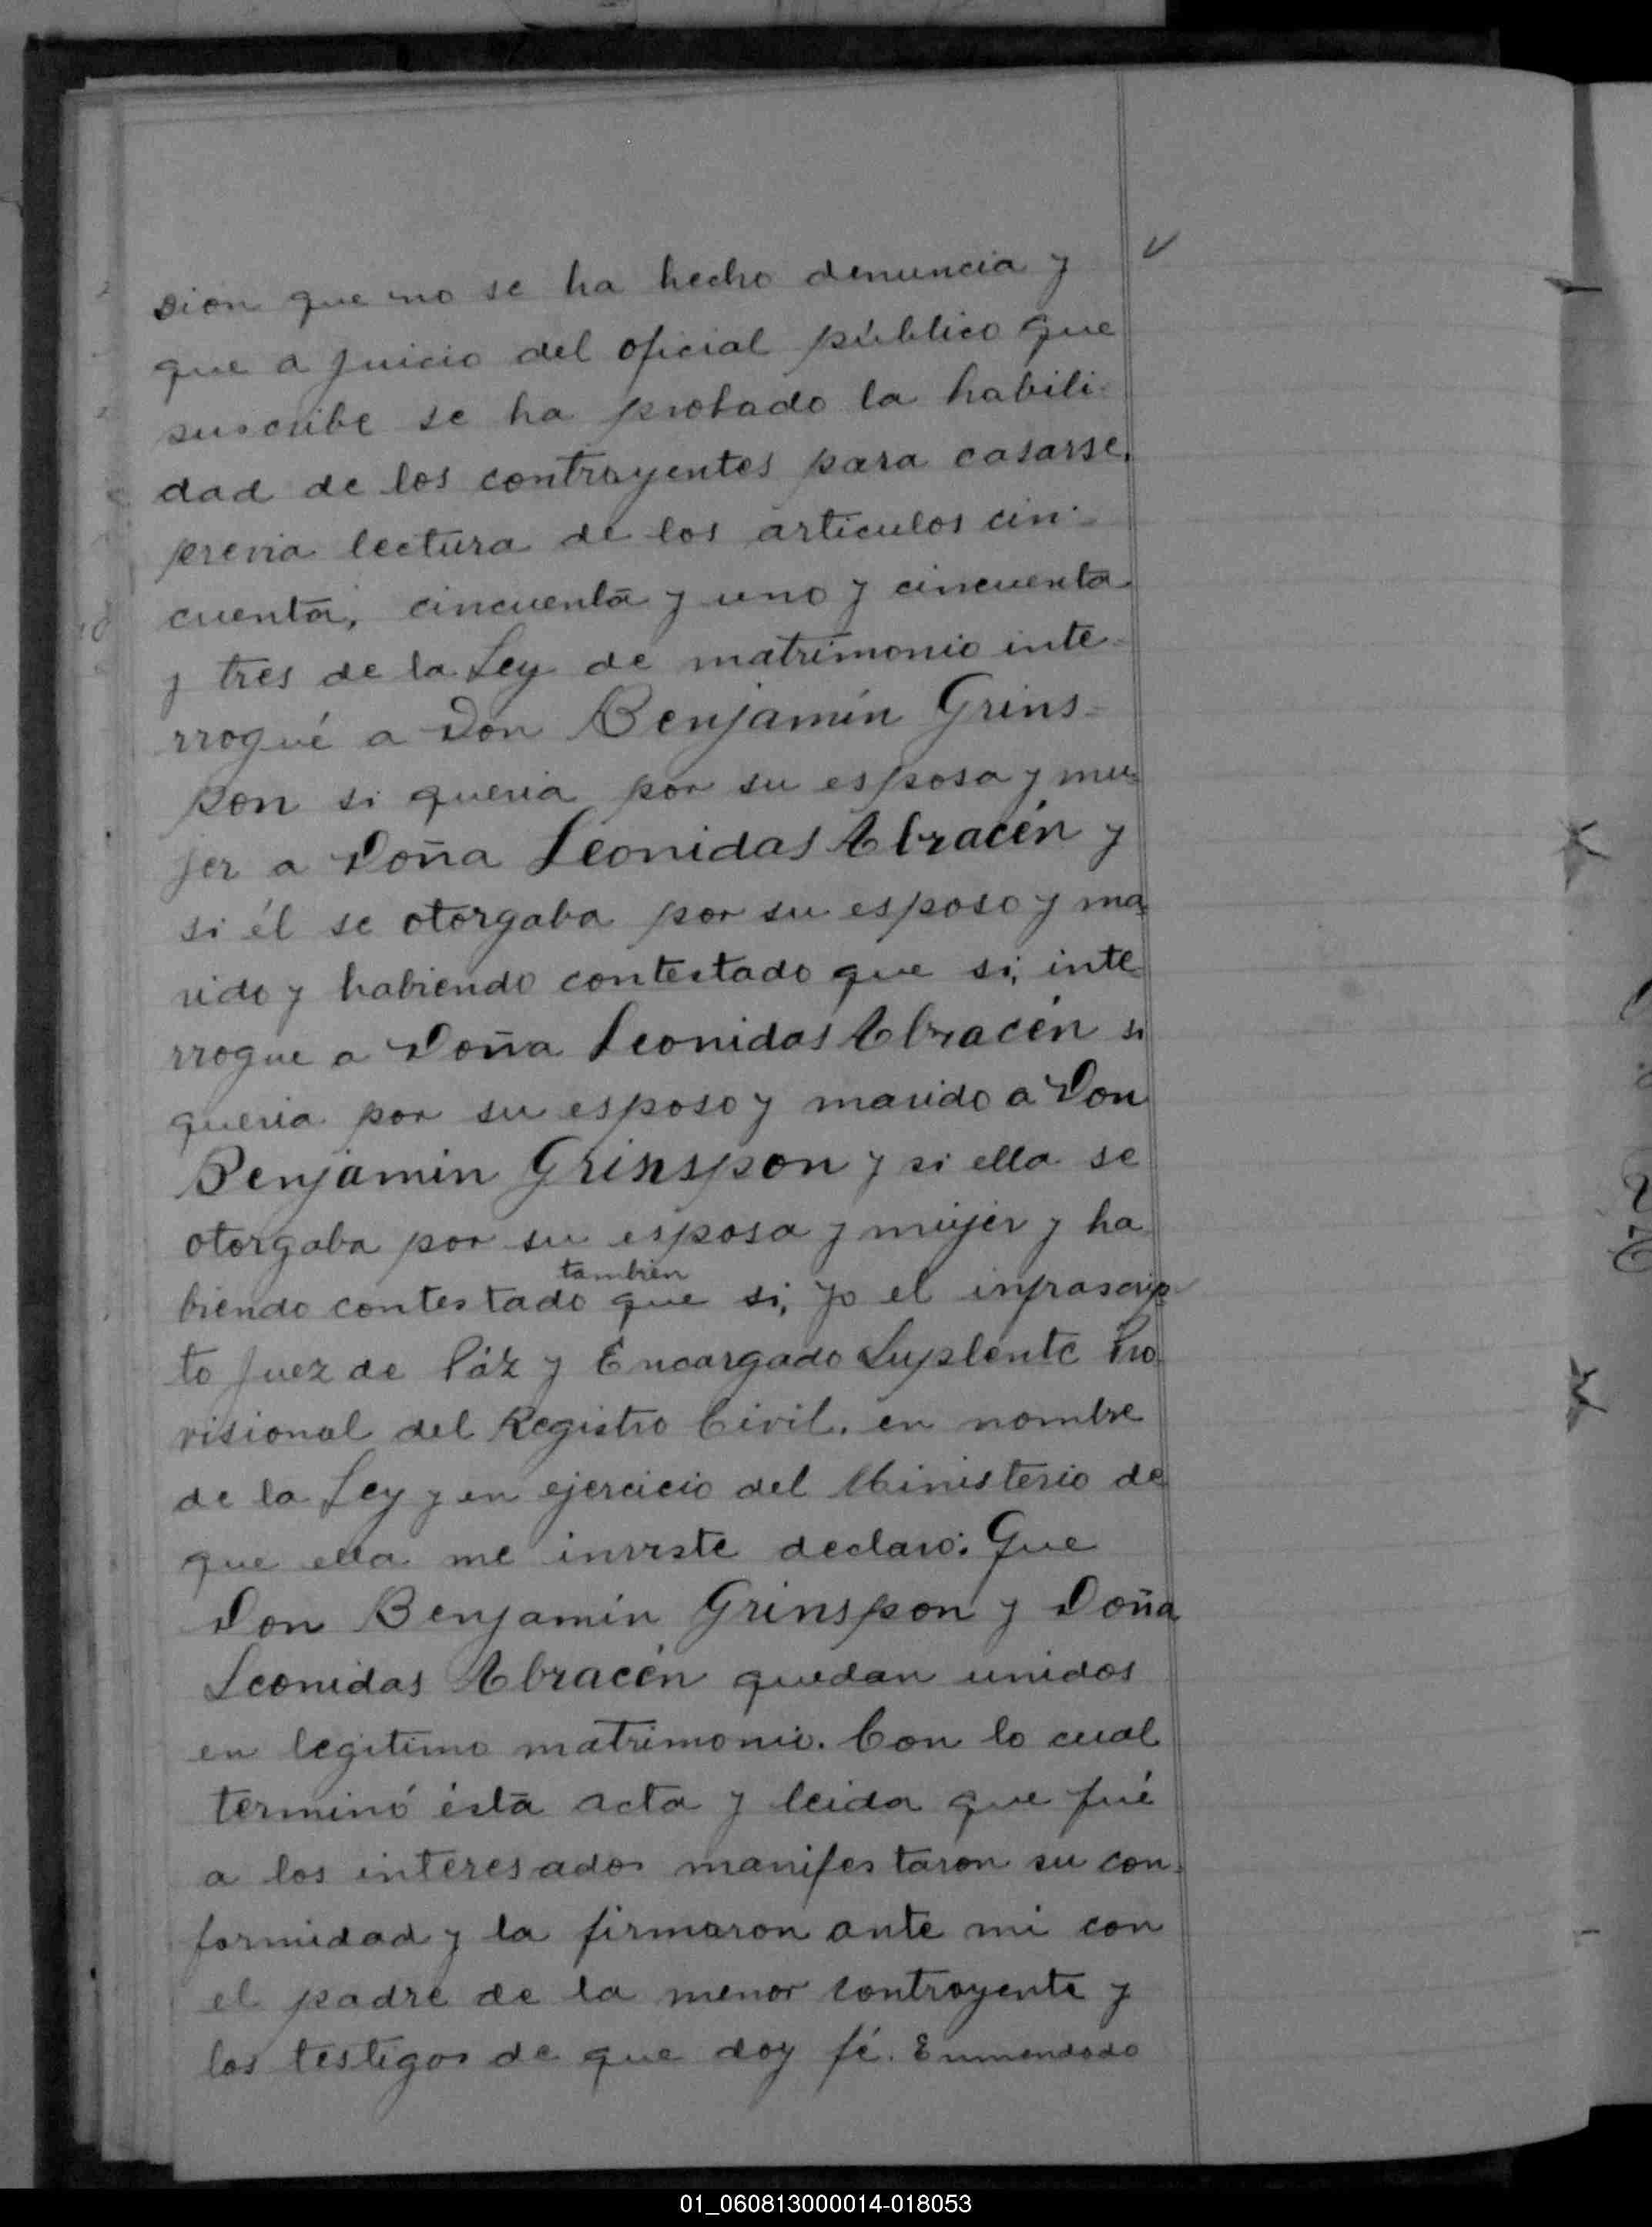 sion que no se ha hecho denuncia y
que a juicio del oficial público que
suscribe se ha probado la habili-
dad de los contrayentes para casarse,
previa lectura de los articulos cin-
cuenta, cincuenta y uno y cincuenta
y tres de la Ley de matrimonio inte-
rrogué a Don Benjamín Grins-
pon si queria por su esposa y mu-
jer a Doña Leonidas Abracén y
si él se otorgaba por su esposo y ma-
rido y habiendo contestado que si, inte-
rrogue a Doña Leonidas Abracén si
queria por su esposo y marido a Don
Benjamin Grinspon y si ella se
otorgaba por su esposa y mujer y ha
también
biendo contestado que si, yo el infrascrip-
to Juez de Páz y Encargado Suplente Pro-
visional del Registro Civil, en nombre
de la Ley y en ejercicio del Ministerio de
que ella me inviste declaro: Que
Don Benjamín Grinspon y Doña
Leonidas Abracén quedan unidos
en legitimo matrimonio. Con lo cual
terminó ésta acta y leida que fué
a los interesados manifestaron su con-
formidad y la firmaron ante mi con
el padre de la menor contrayente y
los testigos de que doy fé. Enmendado
01_060813000014-018053